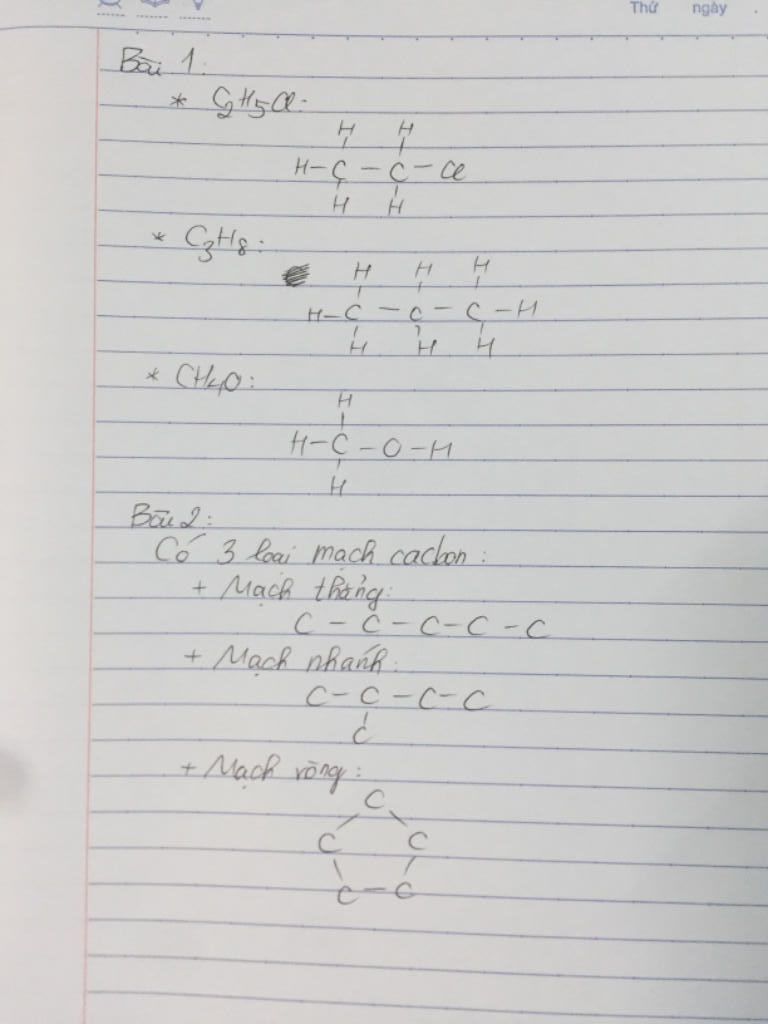 Thứ ngày .
Bài 1:
* C2H5Cl:
H H
H - C - C - Cl
H H
* C3H8:
H H H
H - C - C - C - H
H H H
* CH4O:
H
H - C - O - H
H
Bài 2:
Có 3 loại mạch cacbon:
+ Mạch thẳng:
C - C - C - C - C
+ Mạch nhánh:
C - C - C - C
C
+ Mạch vòng:
C
C C
C - C